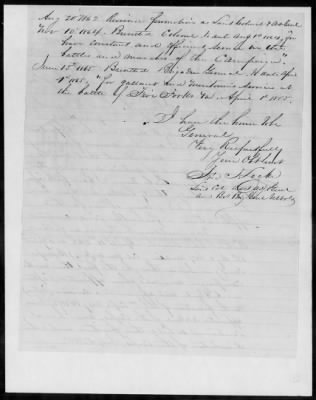 Aug 20 1862 Received promotion as Lieut Colonel
Nov 12 1864. Brevetted Colonel to date Aug 1st 1864, for
brave constant and efficient service in the
battles and marches of the Campaign."
June 15th 1865 Brevetted Brigadier General to date April
1st 1865, "for gallant and meritorious service at
the battle of Five Forks Va April 1st 1865.
I have the honor to be
General
Very Respectfully
Your Obt Servt
Lieut Col